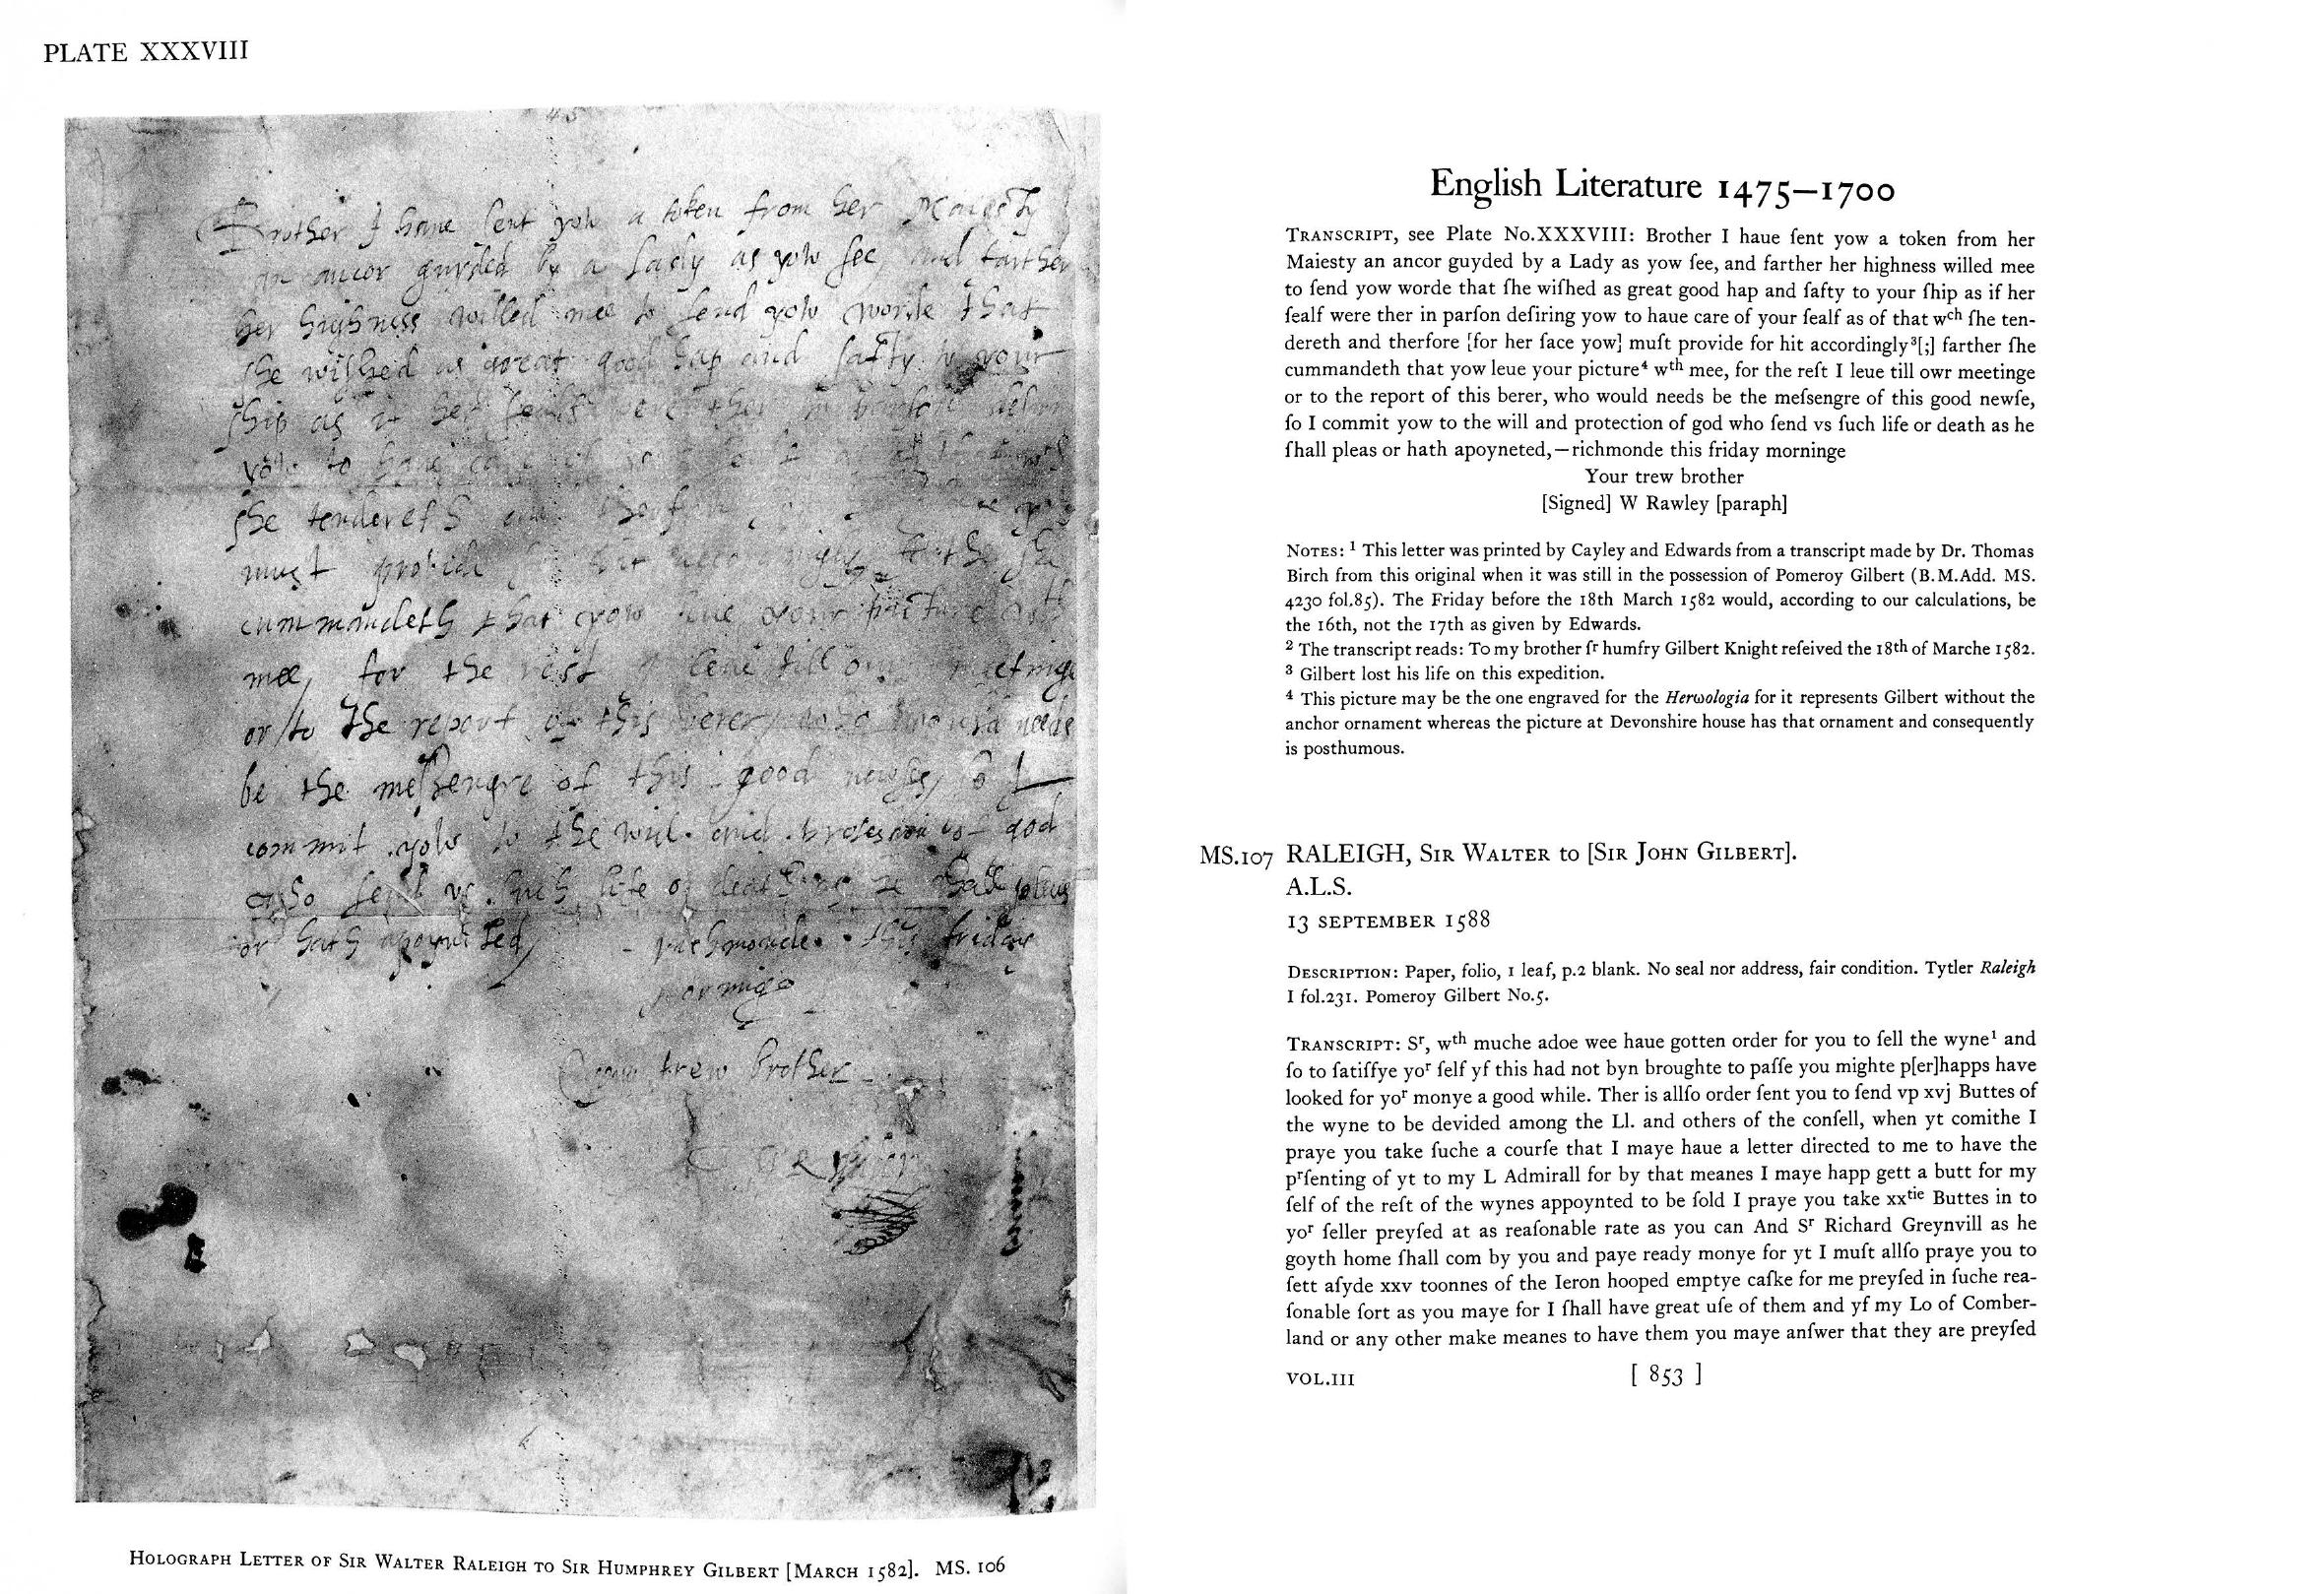 PLATE XXXVIII
Brother I haue ſent yow a token from her Maiesty
an ancor guyded by a Lady as yow ſee, and farther
her highness willed mee to ſend yow worde that
ſhe wiſhed as great good hap and ſafty to your
ſhip as if her ſealf were ther in parſon deſiring
yow to haue care of your ſealf as of that wch
ſhe tendereth and therfore
muſt provide for hit accordingly farther ſhe
cummandeth that yow leue your picture wth
mee, for the reſt I leue till owr meetinge
or to the report of this berer, who would needs
be the meſsengre of this good newſe, ſo I
commit yow to the will and protection of god
who ſend vs ſuch life or death as he ſhall pleas
or hath apoynted, richmonde this friday
morninge
Your trew Brother
W Rawley
HOLOGRAPH LETTER OF SIR WALTER RALEIGH TO SIR HUMPHREY GILBERT [MARCH 1582]. MS. 106
English Literature 1475–1700
TRANSCRIPT, see Plate No.XXXVIII: Brother I haue ſent yow a token from her
Maiesty an ancor guyded by a Lady as yow ſee, and farther her highness willed mee
to ſend yow worde that ſhe wiſhed as great good hap and ſafty to your ſhip as if her
ſealf were ther in parſon deſiring yow to haue care of your ſealf as of that wᶜʰ ſhe ten-
dereth and therfore [for her ſace yow] muſt provide for hit accordingly³[;] farther ſhe
cummandeth that yow leue your picture⁴ wᵗʰ mee, for the reſt I leue till owr meetinge
or to the report of this berer, who would needs be the meſsengre of this good newſe,
ſo I commit yow to the will and protection of god who ſend vs ſuch life or death as he
ſhall pleas or hath apoyneted,—richmonde this friday morninge
Your trew brother
[Signed] W Rawley [paraph]
NOTES: ¹ This letter was printed by Cayley and Edwards from a transcript made by Dr. Thomas
Birch from this original when it was still in the possession of Pomeroy Gilbert (B.M.Add. MS.
4230 fol.85). The Friday before the 18th March 1582 would, according to our calculations, be
the 16th, not the 17th as given by Edwards.
² The transcript reads: To my brother ſʳ humfry Gilbert Knight reſeived the 18th of Marche 1582.
³ Gilbert lost his life on this expedition.
⁴ This picture may be the one engraved for the Herωologia for it represents Gilbert without the
anchor ornament whereas the picture at Devonshire house has that ornament and consequently
is posthumous.
MS.107 RALEIGH, SIR WALTER to [SIR JOHN GILBERT].
A.L.S.
13 SEPTEMBER 1588
DESCRIPTION: Paper, folio, 1 leaf, p.2 blank. No seal nor address, fair condition. Tytler Raleigh
I fol.231. Pomeroy Gilbert No.5.
TRANSCRIPT: Sʳ, wᵗʰ muche adoe wee haue gotten order for you to ſell the wyne¹ and
ſo to ſatiſfye yoʳ ſelf yf this had not byn broughte to paſſe you mighte p[er]happs have
looked for yoʳ monye a good while. Ther is allſo order ſent you to ſend vp xvj Buttes of
the wyne to be devided among the Ll. and others of the conſell, when yt comithe I
praye you take ſuche a courſe that I maye haue a letter directed to me to have the
pʳſenting of yt to my L Admirall for by that meanes I maye happ gett a butt for my
ſelf of the reſt of the wynes appoynted to be ſold I praye you take xxᵗⁱᵉ Buttes in to
yoʳ ſeller preyſed at as reaſonable rate as you can And Sʳ Richard Greynvill as he
goyth home ſhall com by you and paye ready monye for yt I muſt allſo praye you to
ſett aſyde xxv toonnes of the Ieron hooped emptye caſke for me preyſed in ſuche rea-
ſonable ſort as you maye for I ſhall have great uſe of them and yf my Lo of Comber-
land or any other make meanes to have them you maye anſwer that they are preyſed
VOL.III
[ 853 ]